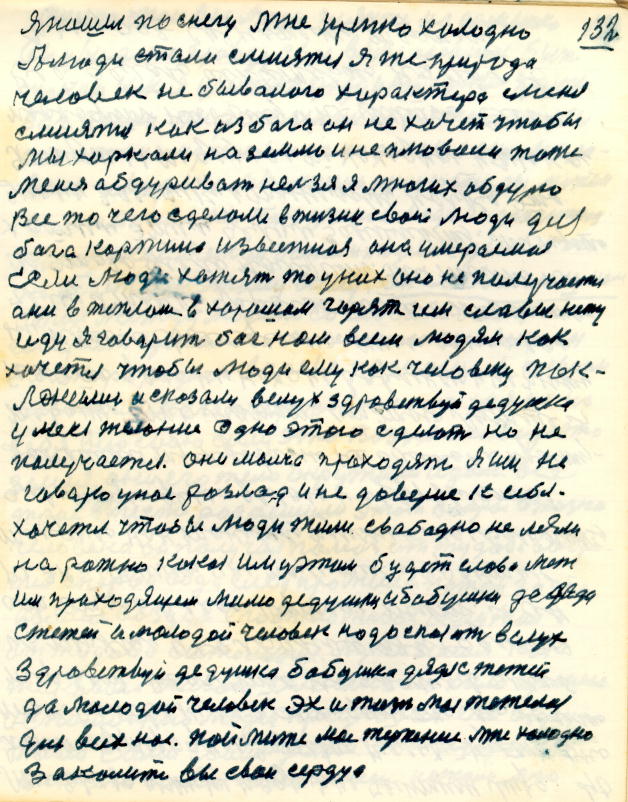 132
Я пошел по снегу мне крепко холодно
Люди стали смиятся я же природа
человек не бывалого характера сменя
смиятся как аз бога он не хочет чтобы
мы харкали на землю и не плювали тоже
меня абдуриват нельзя я многих абдурю
Все то чего сделали в жизни свой люди для
бога картина известная она умераемая
Если люди хотят то у них оно не получается
они в теплом в хорошом горят им славы нету
иду я говарит бог нош всем людям как
хочется чтобы люди ему как человеку пак-
лонились и сказали велух здравствуй дедушка
у меня желоние одно этого сделат но не
палучается. они молча праходят я им не
говарю у нас розлад и не доверие к себе.
хочется чтобы люди жили свабадно не лезли
на рожно какая им ужим будет слава
им праходящем мимо дедушки и бабушки да дяди
с тетей и молодой человек надо сказат велух
Здравствуй дедушка бабушка дядя с тетей
да молодой человек эх и жизнь моя тяжелая
для всех нас. поймите мое терпение мне холодно
Закалите вы свои сердца